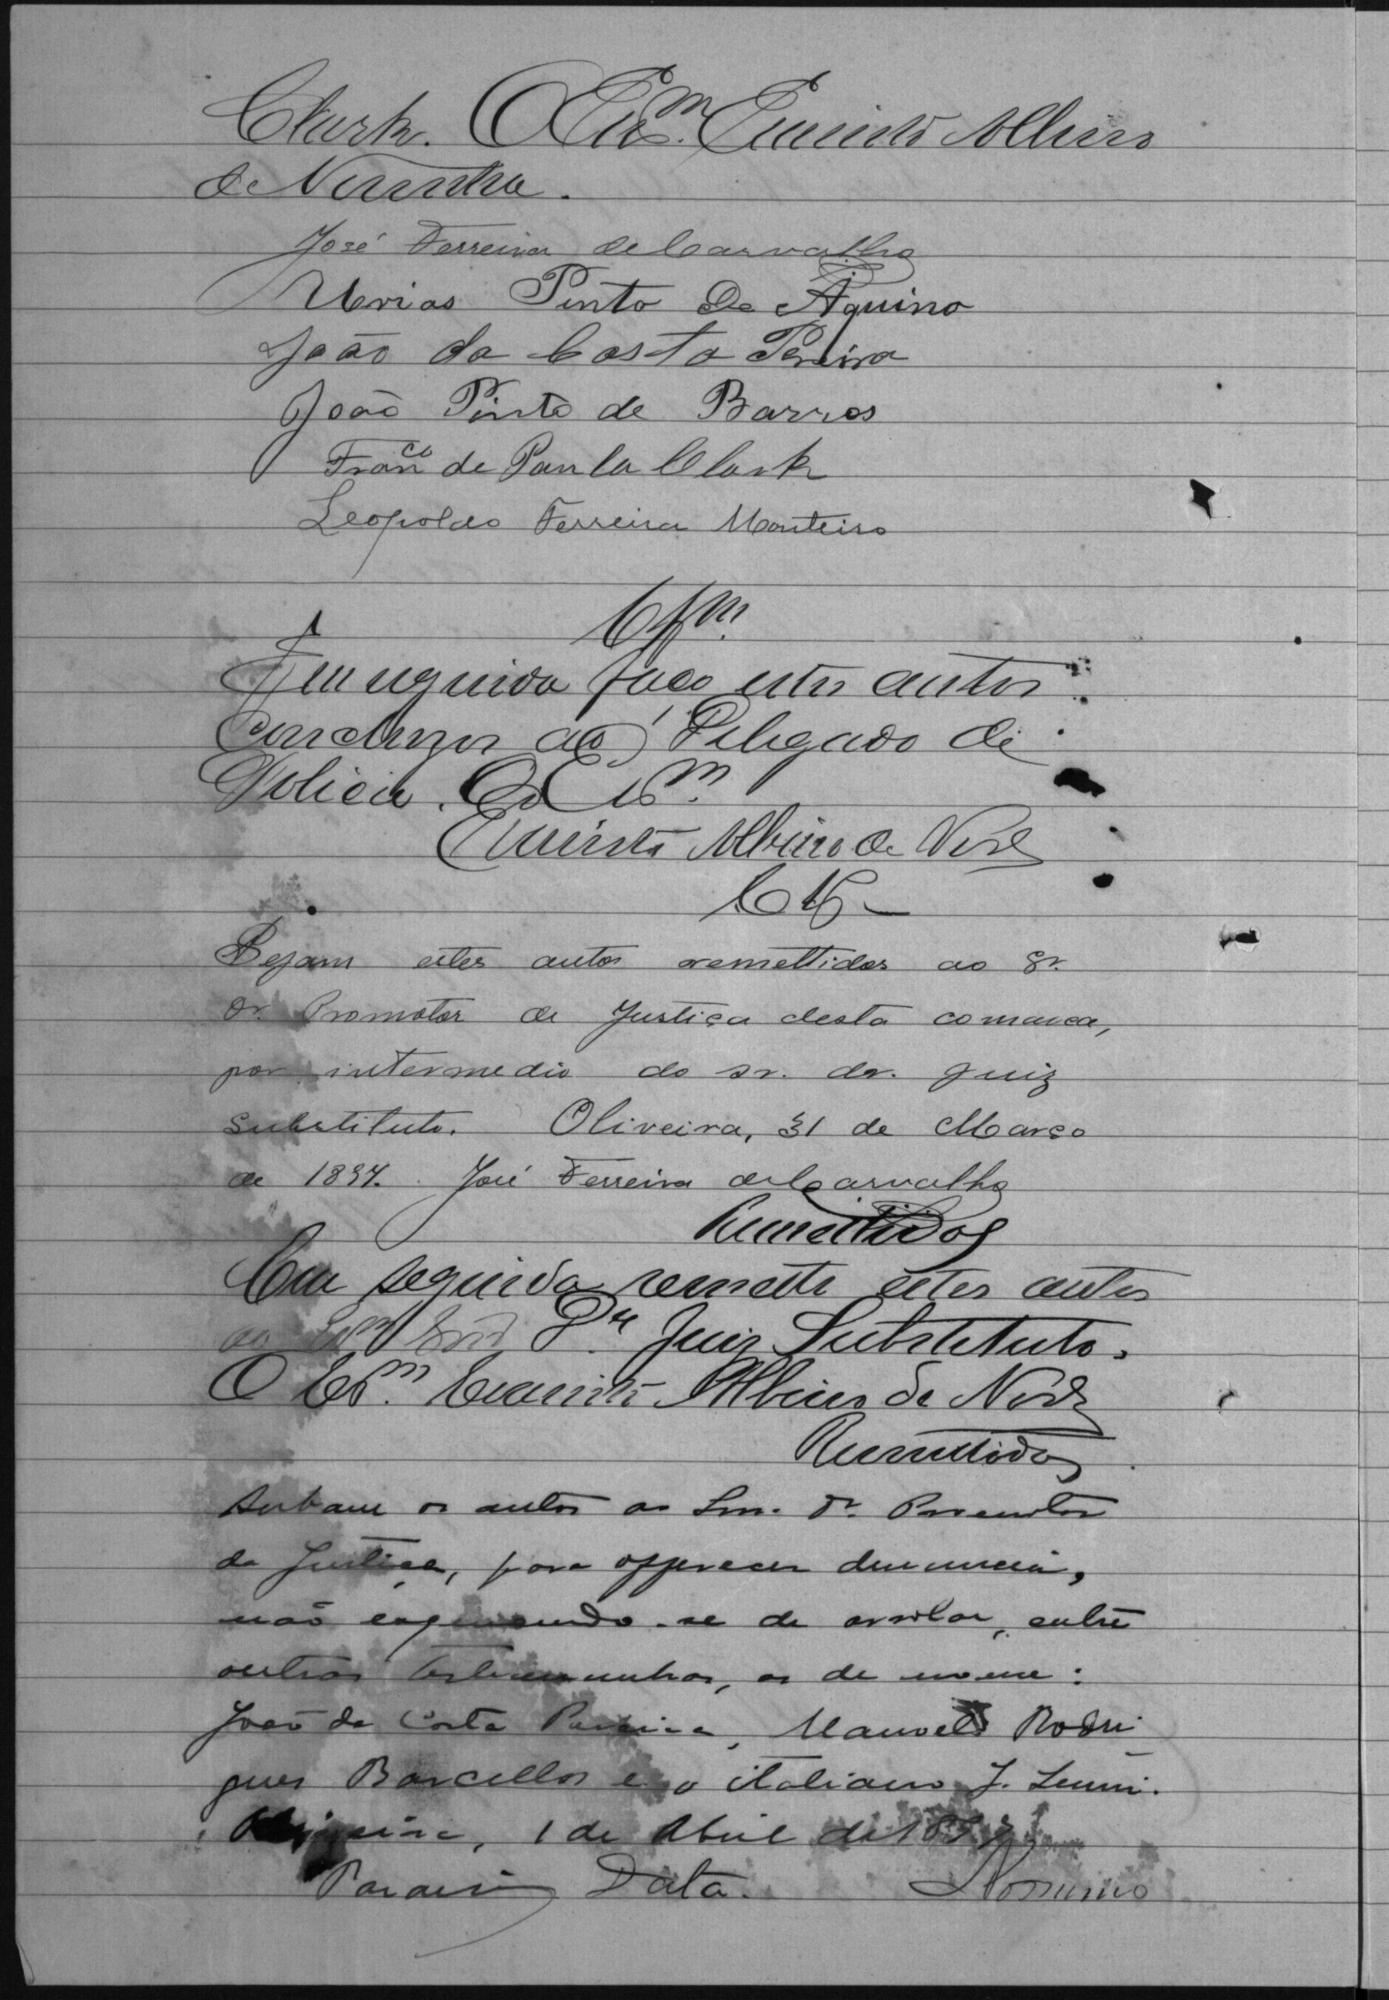 Clark. O Escm. Evaristo Albino
de Noronha.
José Ferreira de Carvalho
Urias Pinto De Aquino
João da Costa Pereira
João Pinto de Barros
Franco de Paula Clark
Leopoldo Ferreira Monteiro
Em seguida faço estes autos
conclusos ao Delegado de
Policia. O Escm.
Albino de Norª
Cls
Sejam estes autos remettidos ao Sr.
dr. Promotor de Justiça desta comarca,
por intermedio do sr. dr. Juiz
substituto. Oliveira, 31 de Março
de 1897. José Ferreira de Carvalho
Remettidos
Em seguida remetti estes autos
ao Dr. Juiz Substituto.
O Escm. Albino de Norª
Remettidos
os autos ao Snr. Dr. Promotor
da Justiça, para offerecer denuncia,
não se de arrolar, entre
outras testemunhas, as de nome:
João da Costa Pereira, Manoel Rodri
gues Barcellos e o italiano J.
Oliveira, 1 de Abril de 1897
Data.